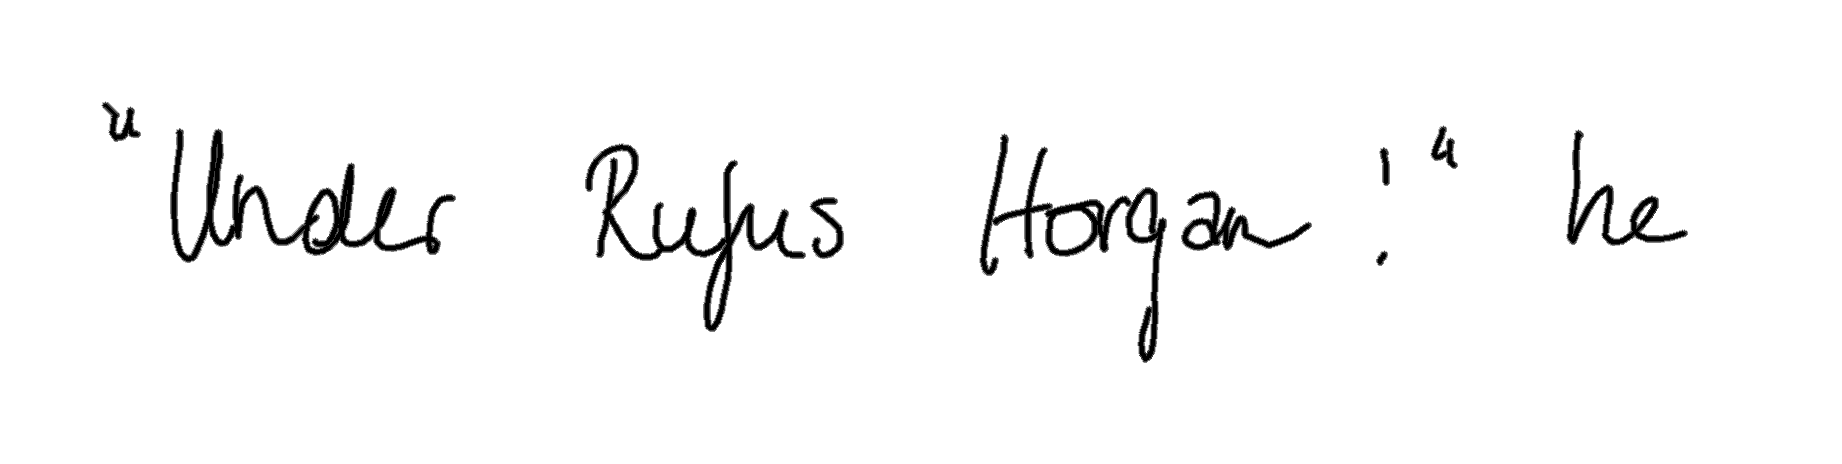 "Under Rufus Horgan!" he